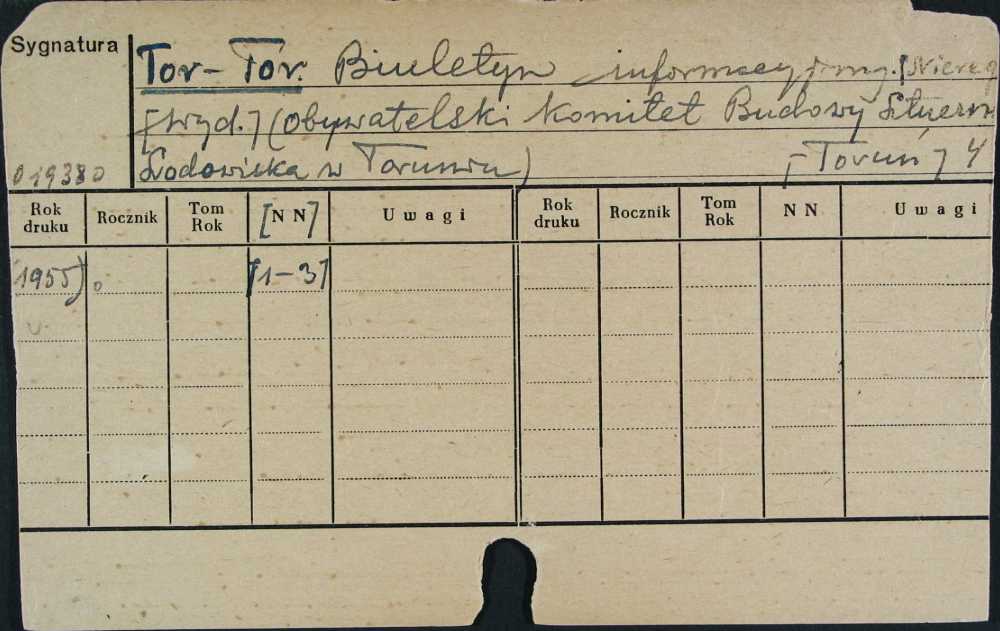 Sygnatura
Tor-Tor. Biuletyn informacyjny. [Niereg
[Wyd.] (Obywatelski Komitet Budowy Sztuczn
Lodowiska w Toruniu) [Toruń] 4
019380
Rok druku Rocznik Tom Rok [NN] Uwagi Rok druku Rocznik Tom Rok NN Uwagi
1955). [1-3]